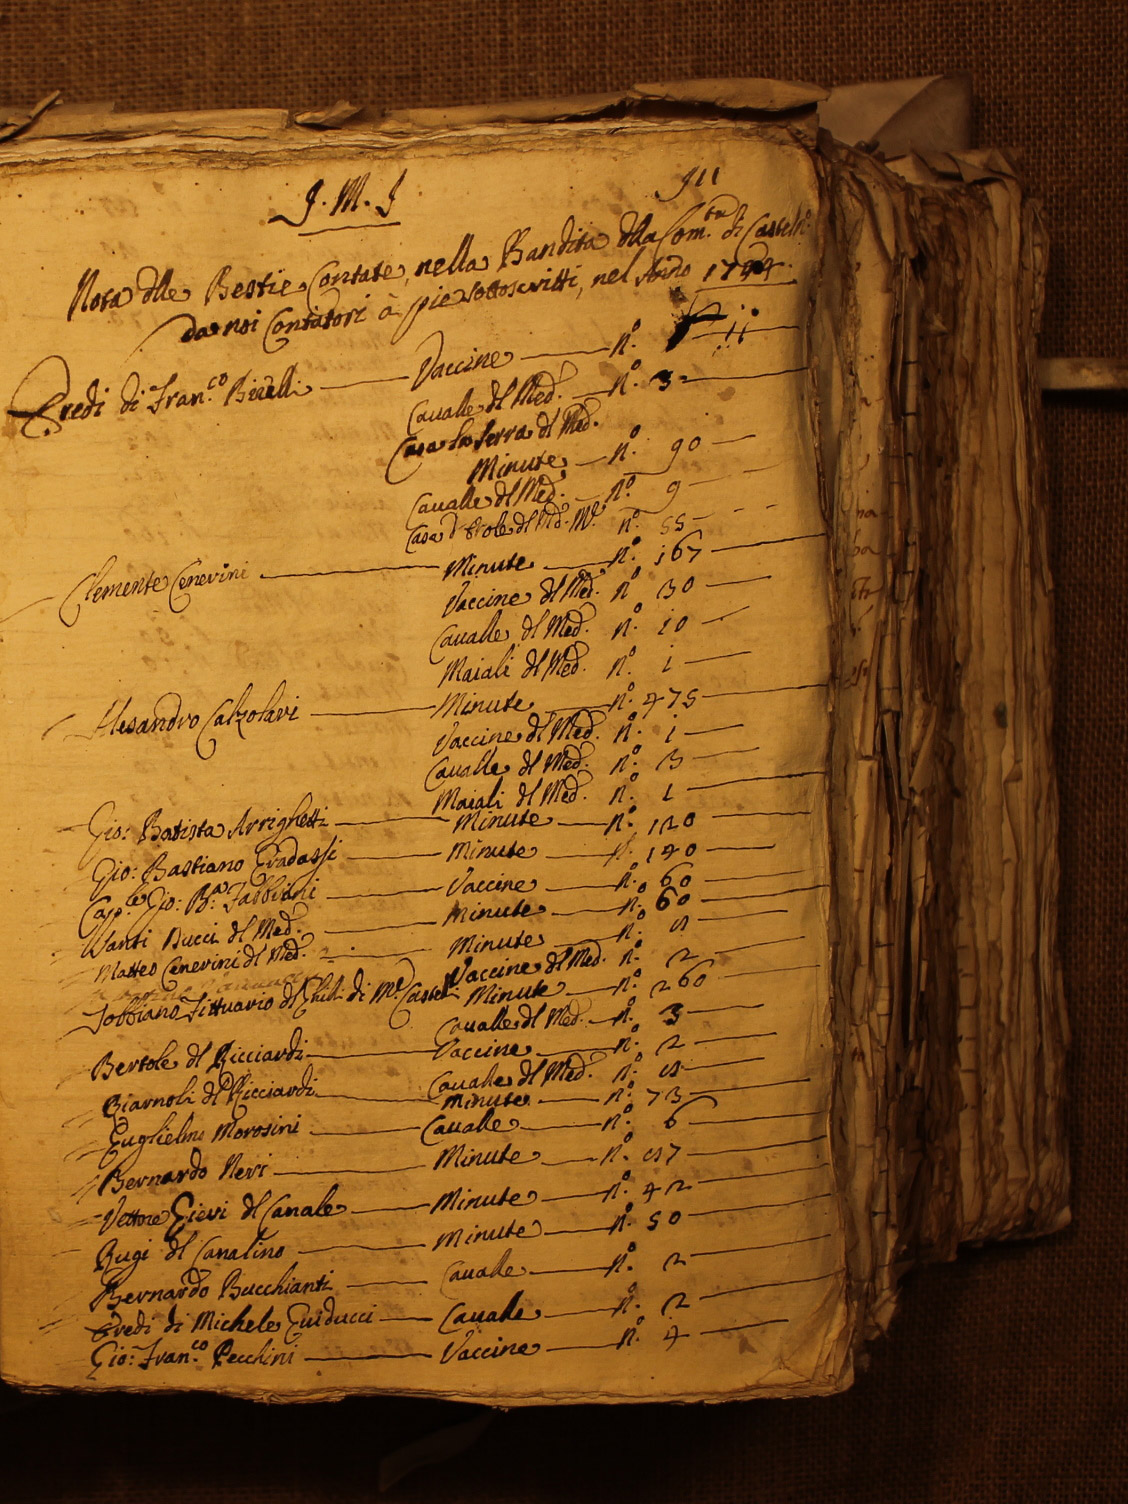 J. M. J
Nota dlle Bestie Contate, nella Bandita dlla Com.tà di Casteln.
da noi Contatori à pie sottoscritti, nel Anno
Eredi di Fran.co Vaccine n.o ii
Caualle dl Med. n.o 3
Casa la Serra dl Med.
Minute n.o 90
Caualle dl Med. n.o 9
Casa dl Med. n.o 55
Clemente Cenerini Minute n.o 167
Vaccine dl Med. n.o 30
Caualle dl Med. n.o 10
Maiali dl Med. n.o i
Alesandro Calzolari Minute n.o 475
Vaccine dl Med. n.o i
Caualle dl Med. n.o 3
Maiali dl Med. n.o 1
Gio: Batista Arrighetti Minute n.o 120
Gio: Bastiano Minute n.o 140
Gio: B.a Fabbrini Vaccine n.o 60
Santi Bucci dl Med. Minute n.o 60
Matteo Cenerini dl Med. Minute n.o
Vaccine dl Med. n.o 2
Fittuario Minute n.o 260
Caualle dl Med. n.o 3
Bertole dl Ricciardi Vaccine n.o 2
Caualle dl Med. n.o
dl Ricciardi Minute n.o 73
Guglielmo Morosini Caualle n.o 6
Bernardo Neri Minute n.o
Vettore Gieri dl Canale Minute n.o 42
Rugi dl Canalino Minute n.o 50
Bernardo Bucchianti Caualle n.o 2
Eredi di Michele Guiducci Caualle n.o 2
Gio: Fran.co Pecchini Vaccine n.o 4